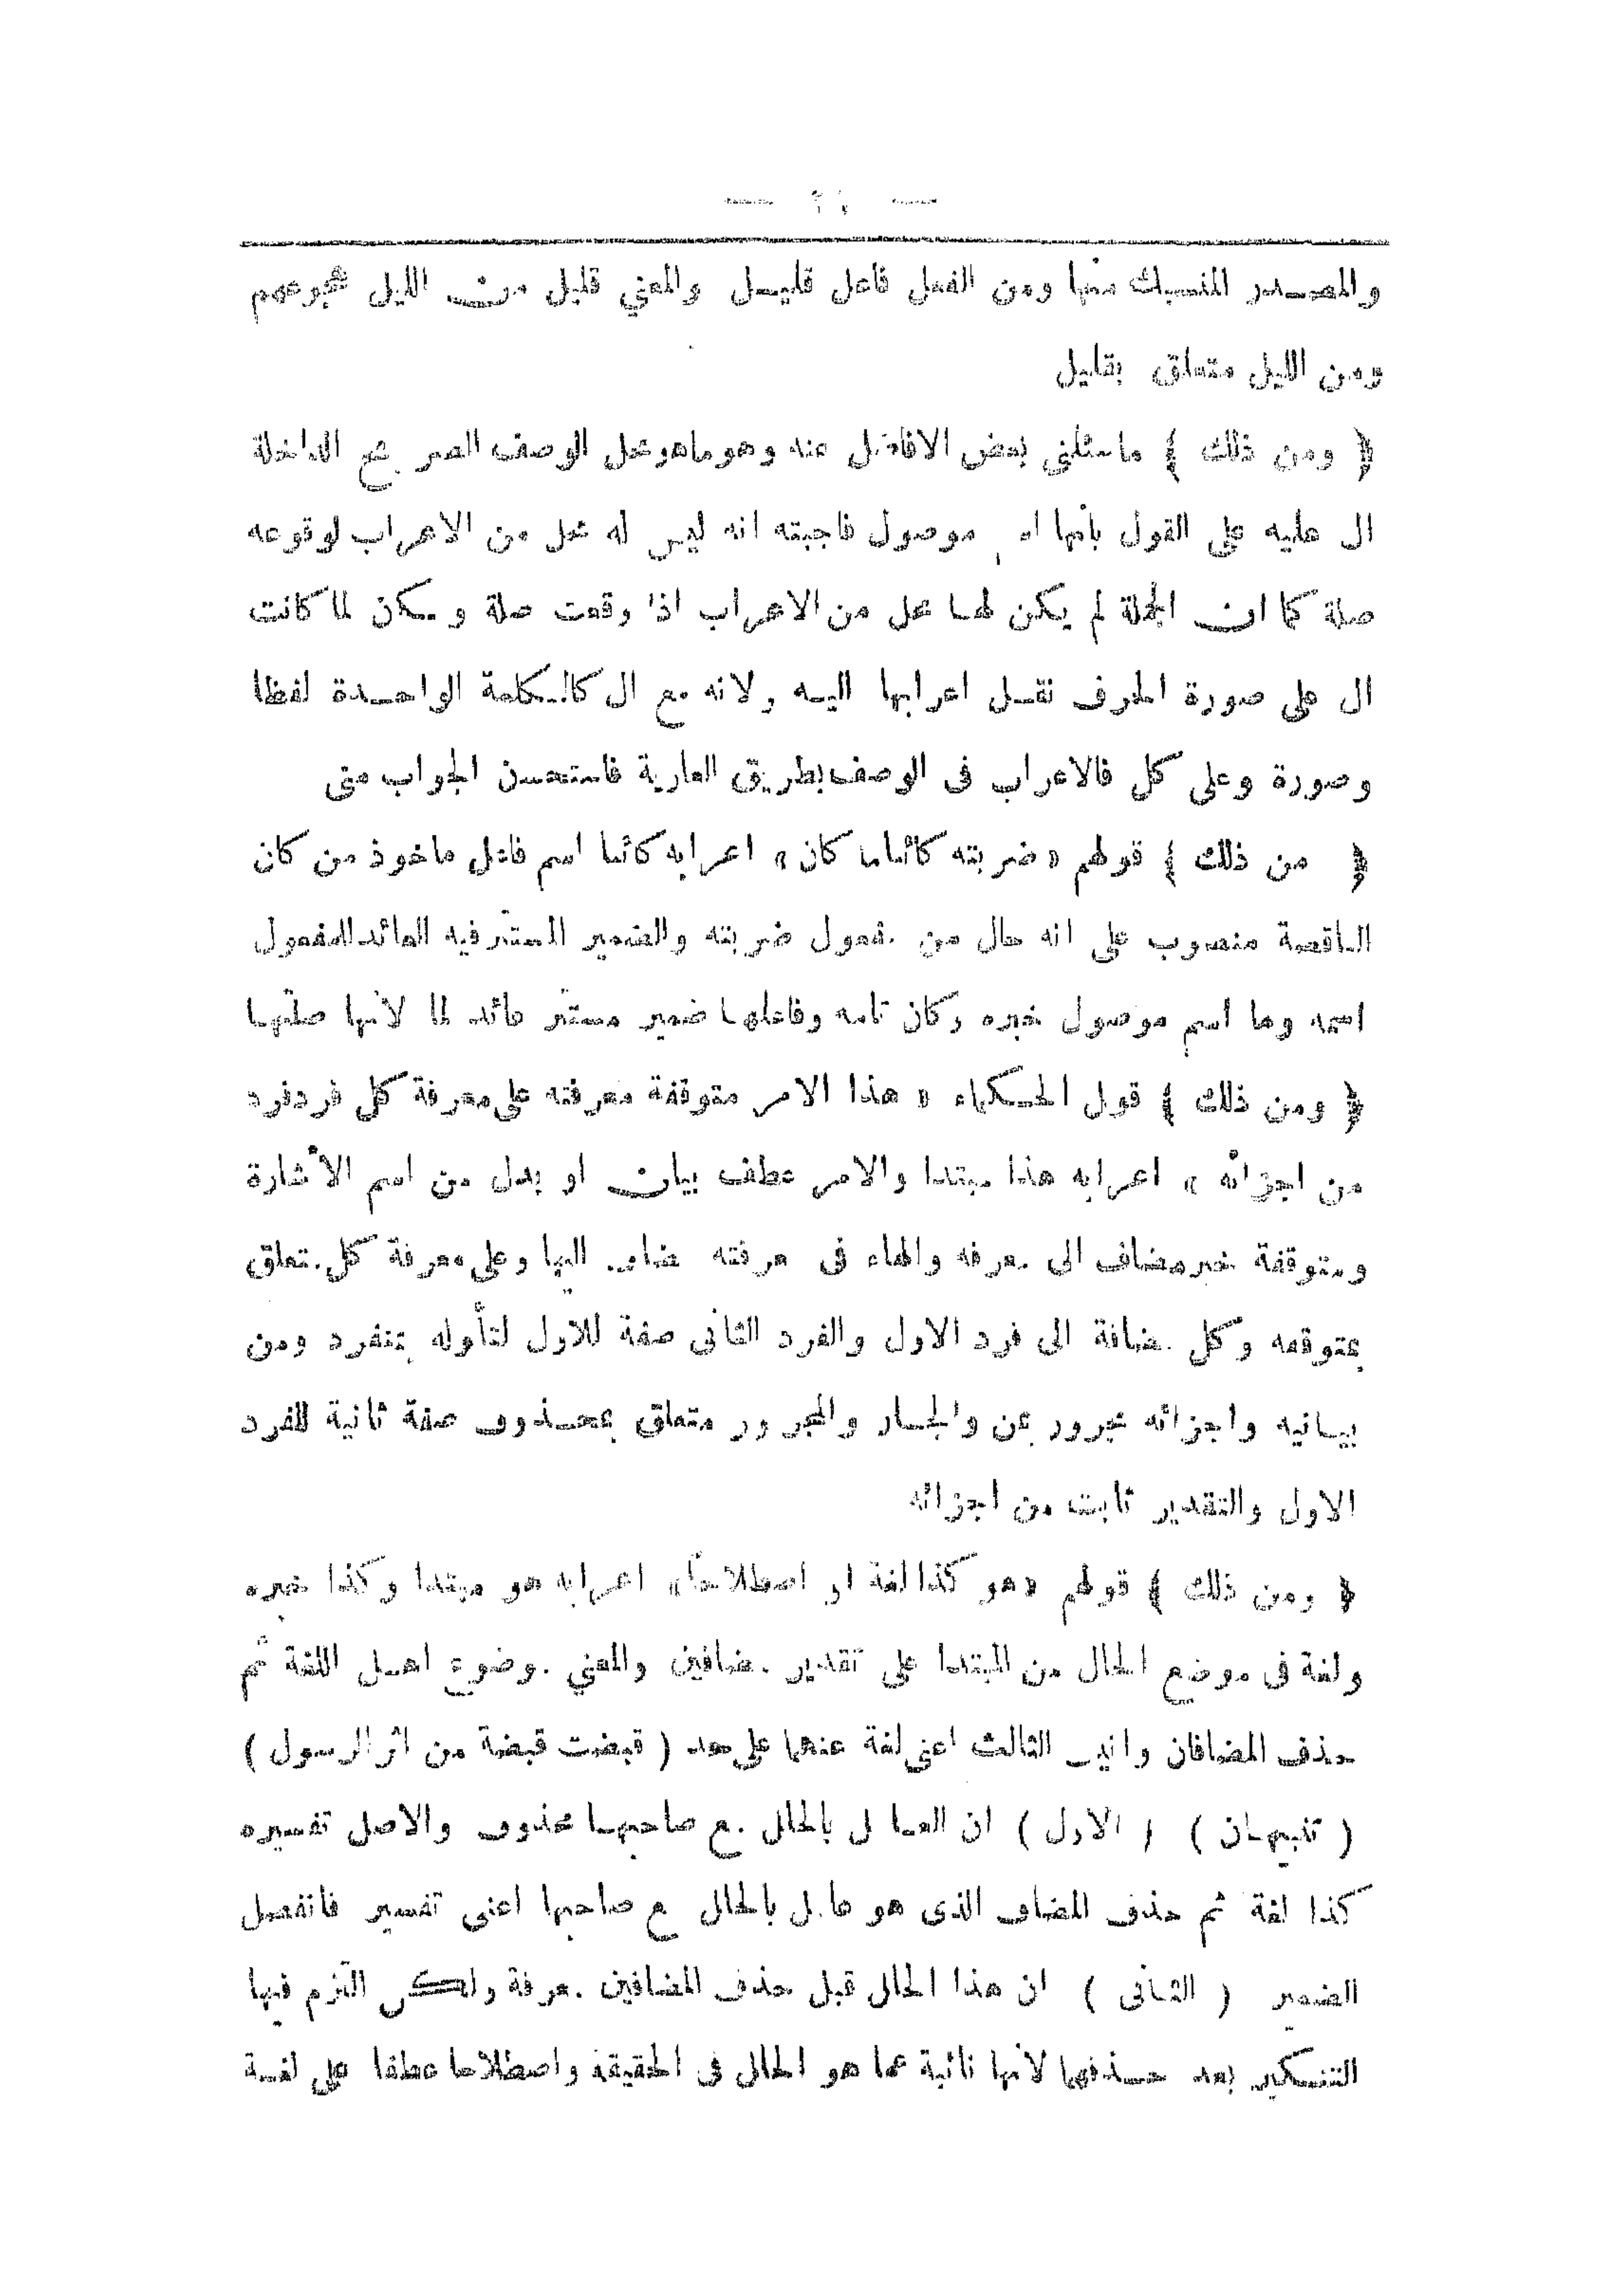 والمصدر المنسبك منها ومن الفعل فاعل قليل والمعني قليل من الليل هجوعهم
ومن الليل متعلق بقليل
﴿ ومن ذلك ﴾ ماسئلني بعض الافاضل عنه وهوماهومحل الوصف الصريح الداخلة
ال عليه على القول بأنها اسم موصول فاجبته انه ليس له محل من الاعراب لوقوعه
صلة كما ان الجملة لم يكن لها محل من الاعراب اذا وقعت صلة و لما كانت
ال على صورة الحرف نقل اعرابها اليه ولانه مع ال كالكلمة الواحدة لفظا
وصورة وعلى كل فالاعراب فى الوصف بطريق العارية فاستحسن الجواب منى
﴿ من ذلك ﴾ قولهم « ضربته كائنا ما كان » اعرابه كائنا اسم فاعل ماخوذ من كان
الناقصة منصوب على انه حال من مفعول ضربته والضمير المستتر فيه العائد للمفعول
اسمه وما اسم موصول خبره وكان تامه وفاعلها ضمير مستتر عائد لما لانها صلتها
﴿ ومن ذلك ﴾ قول الحكماء « هذا الامر متوقفة معرفته على معرفة كل فردفرد
من اجزائه » اعرابه هذا مبتدا والامر عطف بيان او بدل من اسم الأشارة
ومتوقفة خبرمضاف الى معرفه والهاء فى معرفته مضاف اليها وعلى معرفة كل متعلق
بمتوقفه وكل مضافة الى فرد الاول والفرد الثانى صفة للاول لتأوله بمنفرد ومن
بيانيه واجزائه مجرور بمن والجار والمجرور متعلق بمحذوف صفة ثانية للفرد
الاول والتقدير ثابت من اجزائه
﴿ ومن ذلك ﴾ قولهم «هو كذا لغة او اصطلاحا» اعرابه هو مبتدا وكذا خبره
ولغة فى موضع الحال من المبتدا على تقدير مضافين والمعني موضوع اهل اللغة ثم
حذف المضافان وانيب الثالث اعنى لغة عنهما على حد ( قبضت قبضة من اثر الرسول )
( تنبيهان ) ( الاول ) ان العامل بالحال مع صاحبها محذوف والاصل تفسيره
كذا لغة ثم حذف المضاف الذى هو عامل بالحال مع صاحبها اعنى تفسير فانفصل
الضمير ( الثانى ) ان هذا الحال قبل حذف المضافين معرفة ولكن التزم فيها
التنكير بعد حذفهما لانها نائبة عما هو الحال فى الحقيقة واصطلاحا عطفا على لغة